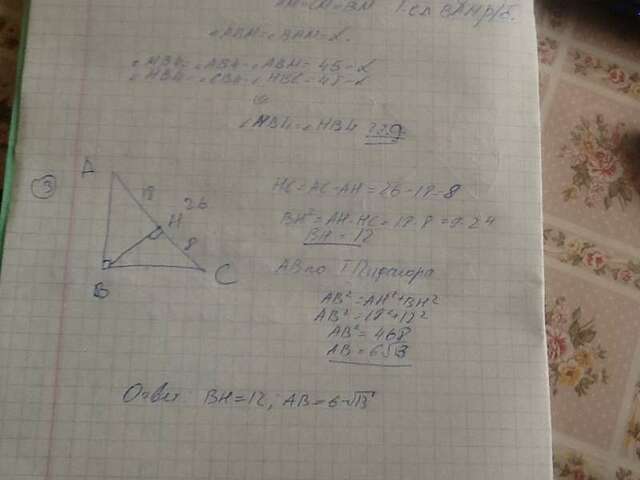 AM=CM=BM
∠ABM=∠BAM=α.
∠MBL=∠ABL-∠ABM=45-α
∠HBL=∠CBL-∠HBC=45-α
∠MBL=∠HBL ч.т.д
3
A
18
26
H
8
B
C
HC=AC-AH=26-18=8
BH²=AH·HC=18·8=9·24
BH=12
AB по Т Пифагора
AB²=AH²+BH²
AB²=18²+12²
AB²=468
AB=6√13
Ответ BH=12; AB=6√13